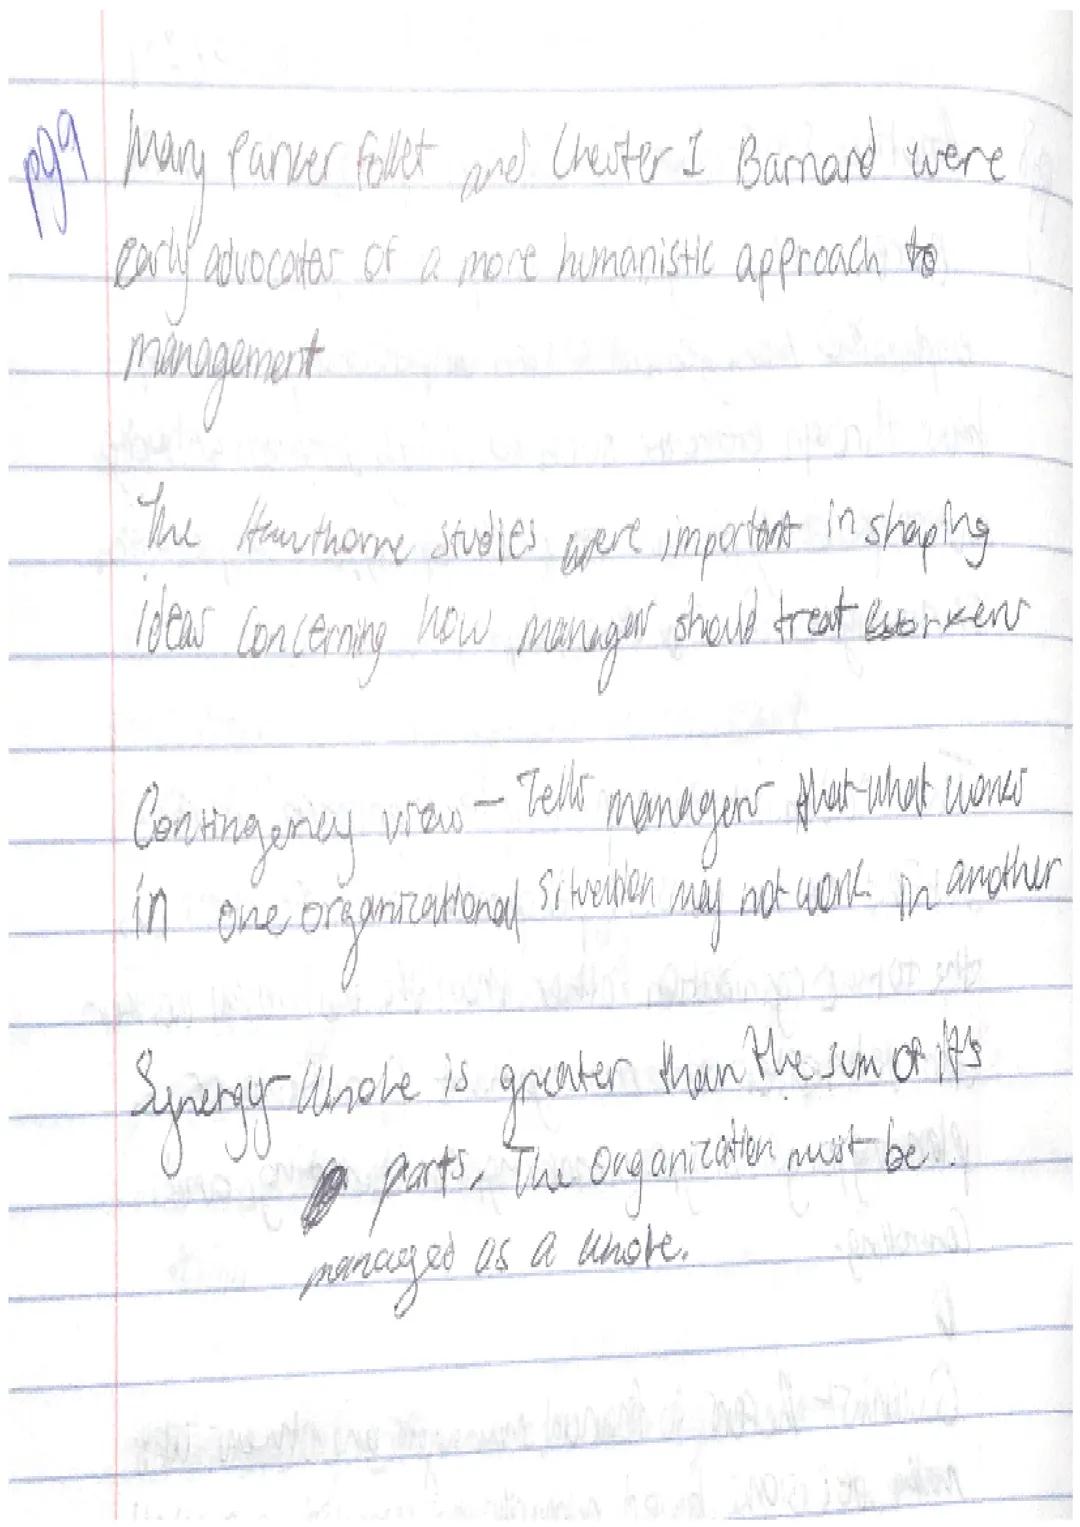 pg9
Mary Parker Follet and Chester I Barnard were
early advocates of a more humanistic approach to
management
The Hawthorne studies were important in shaping
ideas concerning how managers should treat workers
Contingency view - Tells managers that what works
in one organizational situation may not work in another
Synergy - Whole is greater than the sum of it's
parts, The organization must be
managed as a whole.